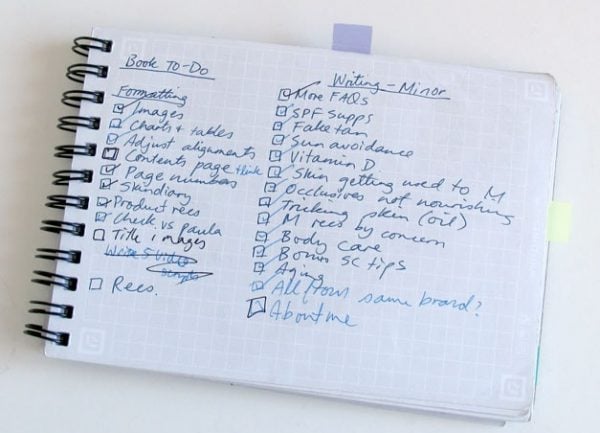 Book To-Do
Formatting
Images
Charts + tables
Adjust alignments
Contents page think
Page numbers
Skindiary
Product recs
Check vs Paula
Title images
Write 5 video
scripts
Recs.
Writing - Minor
More FAQs
SPF supps
Fake tan
Sun avoidance
Vitamin D
Skin getting used to M
Occlusives not nourishing
Tricking skin (oil)
M recs by concern
Body care
Bonus SC tips
Aging
All from same brand?
About me